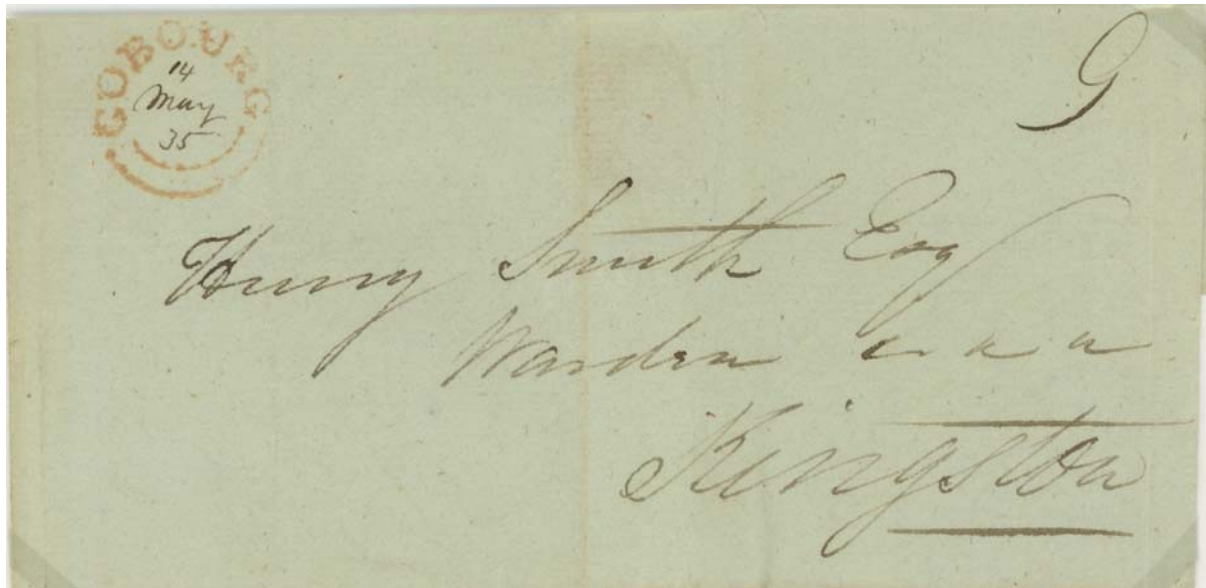 COBOURG
14
May
35
9
Henry Smith Esq
Warden
Kingston